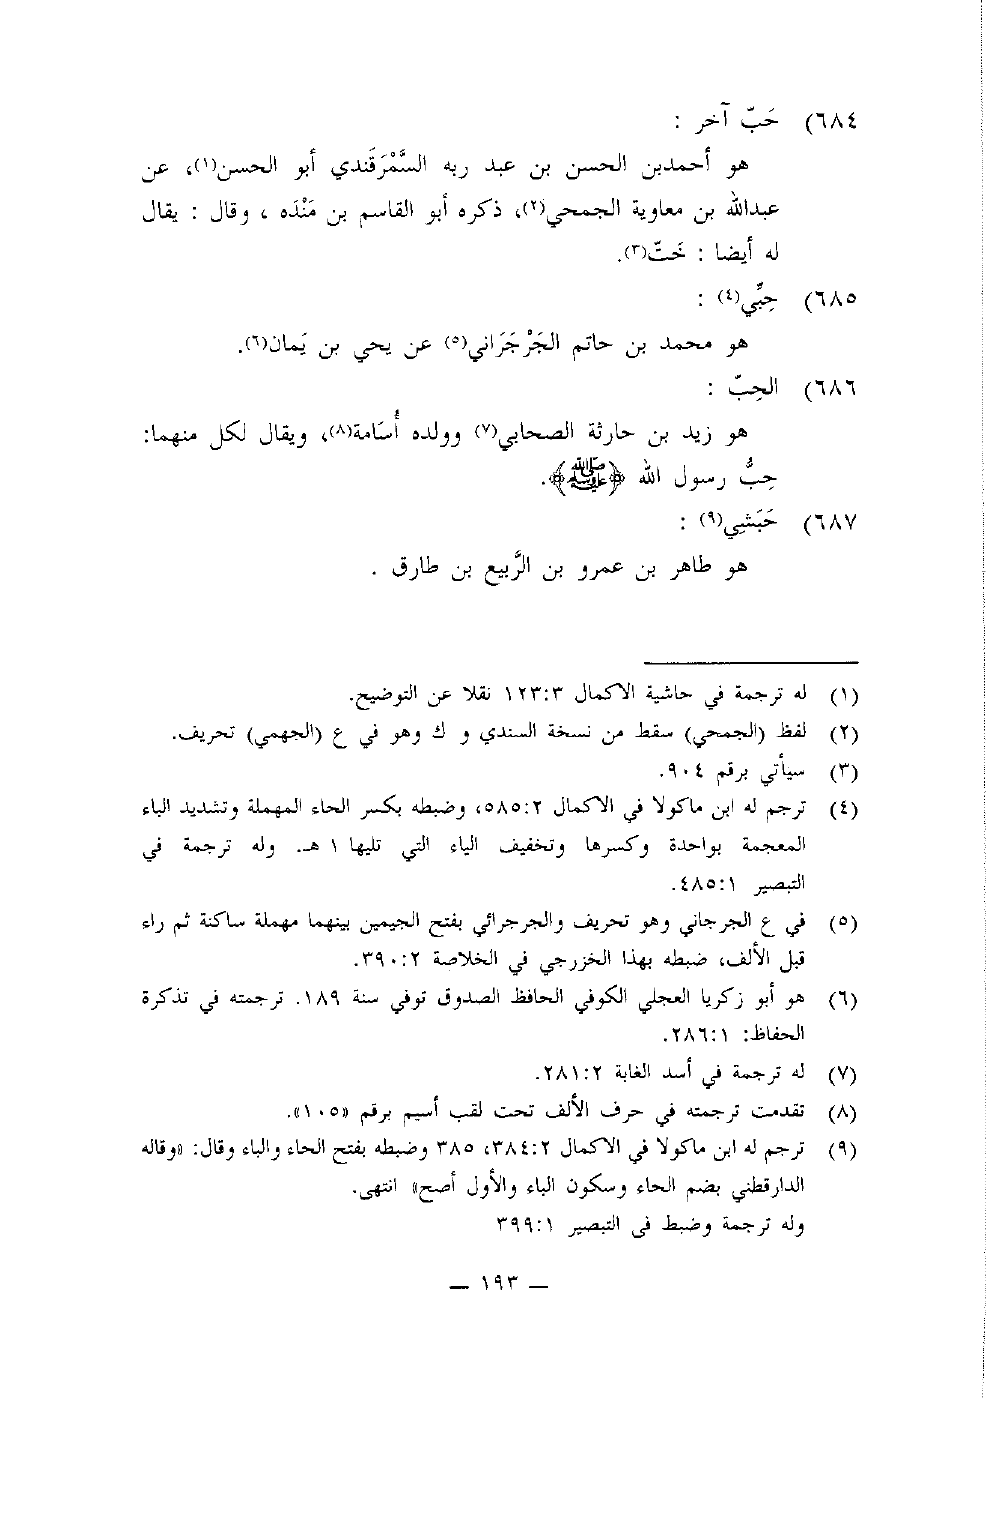 ٦٨٤) حَبّ آخر :
هو أحمدبن الحسن بن عبد ربه السَّمْرَقَندي أبو الحسن(١)، عن
عبدالله بن معاوية الجمحي(٢)، ذكره أبو القاسم بن مَنْدَه ، وقال : يقال
له أيضا : حَتّ(٣).
٦٨٥) حِبِّي(٤) :
هو محمد بن حاتم الجَرْجَرَاني(٥) عن يحي بن يَمان(٦).
٦٨٦) الحِبّ :
هو زيد بن حارثة الصحابي(٧) وولده أُسَامة(٨)، ويقال لكل منهما:
حِبُّ رسول الله ﴿ﷺ﴾.
٦٨٧) حَبَشِي(٩) :
هو طاهر بن عمرو بن الرَّبيع بن طارق .
(١) له ترجمة في حاشية الاكمال ١٢٣:٣ نقلا عن التوضيح.
(٢) لفظ (الجمحي) سقط من نسخة السندي و ك وهو في ع (الجهمي) تحريف.
(٣) سيأتي برقم ٩٠٤.
(٤) ترجم له ابن ماكولا في الاكمال ٥٨٥:٢، وضبطه بكسر الحاء المهملة وتشديد الباء
المعجمة بواحدة وكسرها وتخفيف الياء التي تليها ١ هـ. وله ترجمة في
التبصير ٤٨٥:١.
(٥) في ع الجرجاني وهو تحريف والجرجرائي بفتح الجيمين بينهما مهملة ساكنة ثم راء
قبل الألف، ضبطه بهذا الخزرجي في الخلاصة ٣٩٠:٢.
(٦) هو أبو زكريا العجلي الكوفي الحافظ الصدوق توفي سنة ١٨٩. ترجمته في تذكرة
الحفاظ: ٢٨٦:١.
(٧) له ترجمة في أسد الغابة ٢٨١:٢.
(٨) تقدمت ترجمته في حرف الألف تحت لقب أسيم برقم «١٠٥».
(٩) ترجم له ابن ماكولا في الاكمال ٣٨٤:٢، ٣٨٥ وضبطه بفتح الحاء والباء وقال: «وقاله
الدارقطني بضم الحاء وسكون الباء والأول أصح» انتهى.
وله ترجمة وضبط في التبصير ٣٩٩:١
— ١٩٣ —